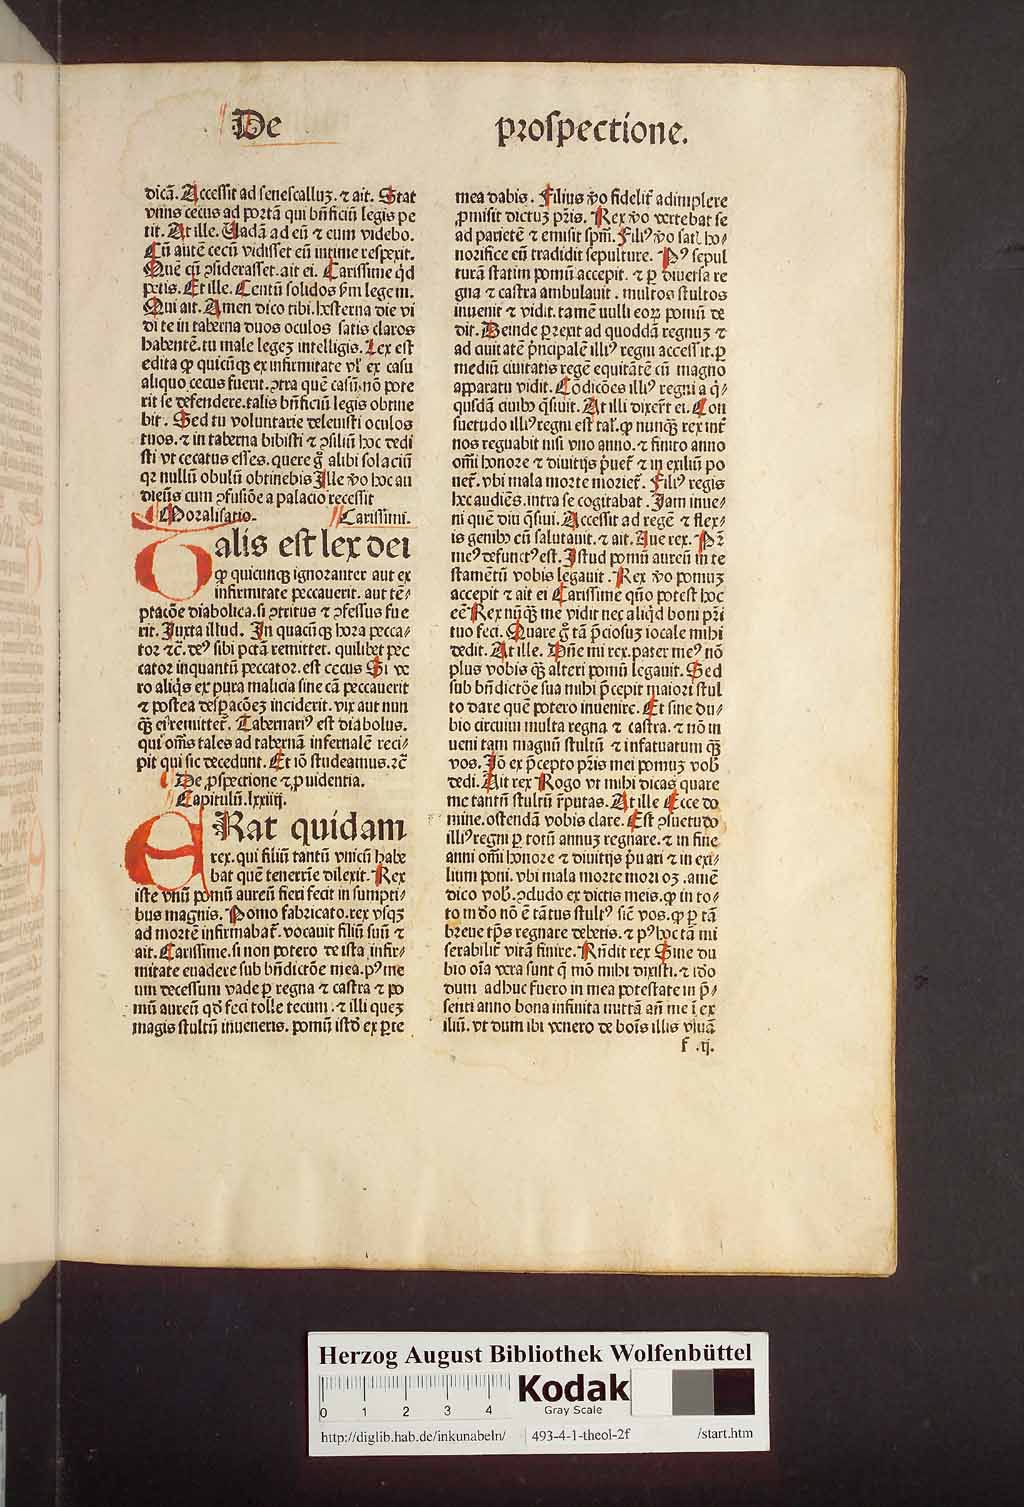 De prospectione.
dicā. Accessit ad senescalluꝫ. ⁊ ait. Stat
vnus cecus ad portā qui bn̄ficiū legis pe
tit. At ille. Uadā ad eū ⁊ eum videbo.
Cū autē cecū vidisset eū intime respexit.
Quē cū ↄsiderasset. ait ei. Carissime qͥd
petis. Et ille. Centū solidos ẜm legem.
Qui ait. Amen dico tibi. hesterna die vi
di te in taberna duos oculos satis claros
habentē. tu male legeꝫ intelligis. Lex est
edita ꝙ quicūqꝫ ex infirmitate vl̓ ex casu
aliquo cecus fuerit. ↄtra quē casū nō pote
rit se defendere. talis bn̄ficiū legis obtine
bit. Sed tu voluntarie deleuisti oculos
tuos. ⁊ in taberna bibisti ⁊ ↄsiliū hoc dedi
sti vt cecatus esses. quere gͦ alibi solaciū
qꝛ nullū obulū obtinebis Ille v̓o hoc au
diēs cum ↄfusiōe a palacio recessit
Moralisatio. Carissimi.
Talis est lex dei
ꝙ quicunqꝫ ignoranter aut ex
infirmitate peccauerit. aut tē⸗
ptacōe diabolica. si ↄtritus ⁊ ↄfessus fue
rit. Juxta illud. In quacūqꝫ hora pecca⸗
tor ⁊c̄. deꝰ sibi pctā remittet. quilibet pec
cator inquantū peccator. est cecus Si ve
ro aliqͥs ex pura malicia sine cā peccauerit
⁊ postea desꝑacōeꝫ inciderit. vix aut nun
qꝫ ei remittet̄. Tabernariꝰ est diabolus.
qui om̄s tales ad tabernā infernalē reci⸗
pit qui sic decedunt. Et iō studeamus. ⁊c̄
De ꝓspectione ⁊ ꝓuidentia.
Capitulū. lxxiiij.
ERat quidam
rex. qui filiū tantū vnicū habe
bat quē tenerrīe dilexit. Rex
iste vnū pomū aureū fieri fecit in sumpti⸗
bus magnis. Pomo fabricato. rex vsqꝫ
ad mortē infirmabat̄. vocauit filiū suū ⁊
ait. Carissime. si non potero de ista infir⸗
mitate euadere sub bn̄dictōe mea. pꝰ me
um decessum vade ꝑ regna ⁊ castra ⁊ po
mū aureū qd̓ feci tolle tecum. ⁊ illi queꝫ
magis stultū inueneris. pomū istd̓ ex ꝑte
mea dabis. Filius v̓o fidelit̓ adimplere
ꝓmisit dictuꝫ pr̄is. Rex v̓o vertebat se
ad parietē ⁊ emisit sp̄m. Filiꝰ v̓o satis ho⸗
norifice eū tradidit sepulture. Pꝰ sepul
turā statim pomū accepit. ⁊ ꝑ diuersa re
gna ⁊ castra ambulauit. multos stultos
inuenit ⁊ vidit. tamē nulli eoꝝ pomū de
dit. Deinde ꝑrexit ad quoddā regnuꝫ ⁊
ad ciuitatē pͥncipalē illiꝰ regni accessit. ꝑ
mediū ciuitatis regē equitātē cū magno
apparatu vidit. Cōdicōes illiꝰ regni a qͥ⸗
qusdā ciuibꝰ qͣsiuit. At illi dixer̄t ei. Con
suetudo illiꝰ regni est tal̓. ꝙ nunqꝫ rex int̓
nos regnabit nisi vno anno. ⁊ finito anno
omī honore ⁊ diuitijs pͥuet̄ ⁊ in exiliū po
net̄. vbi mala morte moriet̄. Filiꝰ regis
hec audiēs. intra se cogitabat. Jam inue⸗
ni quē diu qͣsiui. Accessit ad regē ⁊ flex⸗
is genibꝰ eū salutauit. ⁊ ait. Aue rex. Pr̄
meꝰ defunctꝰ est. Istud pomū aureū in te
stamētū vobis legauit. Rex v̓o pomuꝫ
accepit ⁊ ait ei Carissime quō potest hoc
eē Rex nūqꝫ me vidit nec aliqͥd boni pr̄i
tuo feci. Quare gͦ tā p̄ciosuꝫ iocale mihi
dedit. At ille. Dn̄e mi rex. pater meꝰ nō
plus vobis qꝫ alteri pomū legauit. Sed
sub bn̄dictōe sua mihi p̄cepit maiori stul
to dare quē potero inuenire. Et sine du⸗
bio circuiui multa regna ⁊ castra. ⁊ nō in
ueni tam magnū stultū ⁊ infatuatum qꝫ
vos. Iō ex p̄cepto pr̄is mei pomuꝫ vob̓
dedi. Ait rex Rogo vt mihi dicas quare
me tantū stultū r̄putas. At ille Ecce do
mine. ostendā vobis clare. Est ↄsuetudo
illiꝰ regni ꝑ totū annuꝫ regnare. ⁊ in fine
anni omī honore ⁊ diuitijs pͥuari ⁊ in exi⸗
lium poni. vbi mala morte mori oꝫ. amē
dico vob̓. ↄcludo ex dictis meis. ꝙ in to⸗
to mūdo nō ē tātus stultꝰ sic̄ vos. ꝙ ꝑ tā
breue tp̄s regnare debetis. ⁊ pꝰ hoc tā mi
serabilit̓ vitā finire. Rn̄dit rex Sine du
bio oīa vera sunt qͣ mō mihi dixisti. ⁊ id̓o
dum adhuc fuero in mea potestate in p̄⸗
senti anno bona infinita mittā an̄ me ī ex
iliū. vt dum ibi venero de boīs illis viuā
f .ij.
Herzog August Bibliothek Wolfenbüttel
0 1 2 3 4
Kodak
Gray Scale
http://diglib.hab.de/inkunabeln/ 493-4-1-theol-2f /start.htm